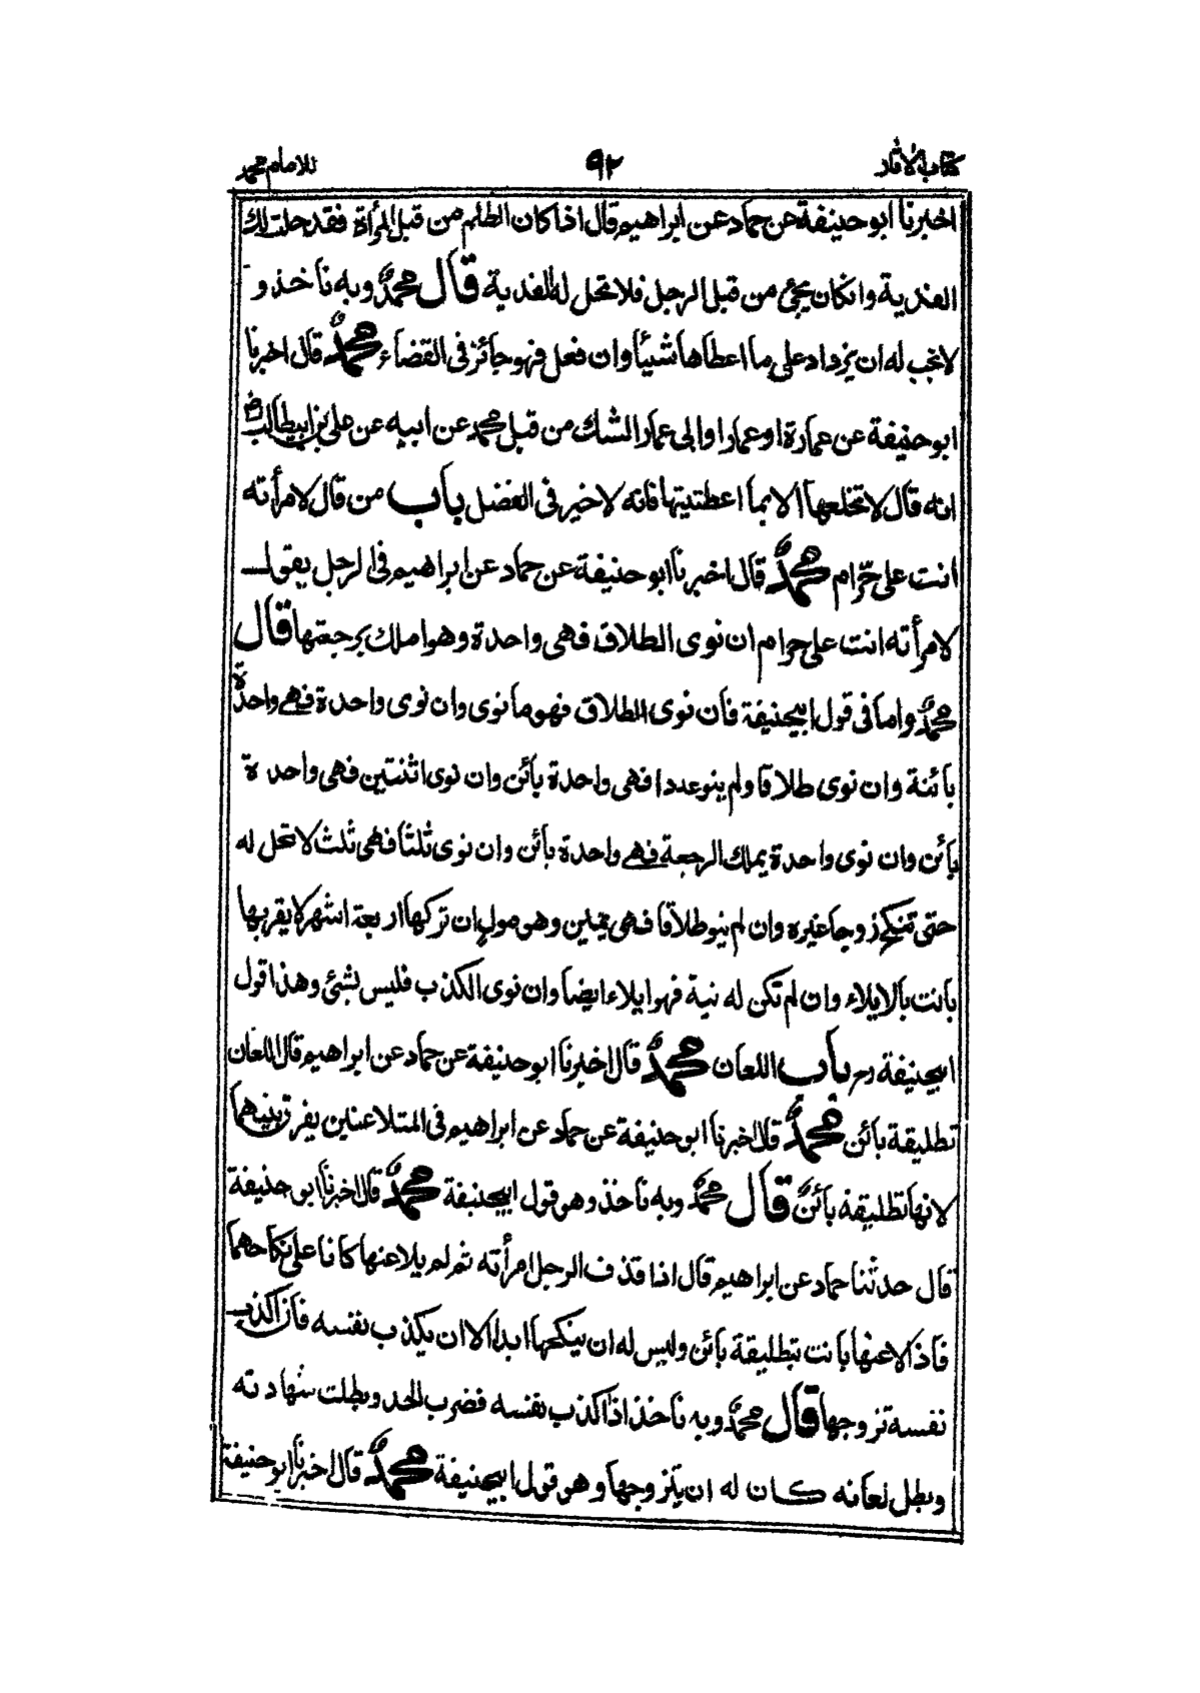 كتاب الاثار ٩٢ للامام محمد
اخبرنا ابو حنيفة عن حماد عن ابراهيم قال اذا كان الظلم من قبل المرأة فقد حلت لك
الفدية وان كان يجئ من قبل الرجل فلا تحل له الفدية قال محمد وبه نأخذ و
لا نحب له ان يزداد على ما اعطاها شيئا وان فعل فهو جائز فى القضاء محمد قال اخبرنا
ابو حنيفة عن عمارة او عمار او ابى عمار الشك من قبل محمد عن ابيه عن على بن ابيطالب رض
انه قال لا تخلعها الا بما اعطيتها فانه لا خير فى الفضل باب من قال لامرأته
انت على حرام محمد قال اخبرنا ابو حنيفة عن حماد عن ابراهيم فى الرجل يقول
لامرأته انت على حرام ان نوى الطلاق فهى واحدة وهو املك برجعتها قال
محمد واما فى قول ابيحنيفة فان نوى الطلاق فهو ما نوى وان نوى واحدة فهى واحدة
بائنة وان نوى طلاقا ولم ينو عددا فهى واحدة بائن وان نوى اثنتين فهى واحدة
بائن وان نوى واحدة يملك الرجعة فهى واحدة بائن وان نوى ثلثا فهى ثلث لا تحل له
حتى تنكح زوجا غيره وان لم ينو طلاقا فهى يمين وهو مول ان تركها اربعة اشهر لا يقربها
بانت بالايلاء وان لم تكن له نية فهو ايلاء ايضا وان نوى الكذب فليس بشئ وهذا قول
ابيحنيفة رح باب اللعان محمد قال اخبرنا ابو حنيفة عن حماد عن ابراهيم قال اللعان
تطليقة بائن محمد قال اخبرنا ابو حنيفة عن حماد عن ابراهيم فى المتلاعنين يفرق بينهما
لانها تطليقة بائن قال محمد وبه نأخذ وهو قول ابيحنيفة محمد قال اخبرنا ابو حنيفة
قال حدثنا حماد عن ابراهيم قال اذا قذف الرجل امرأته ثم لم يلاعنها كانا على نكاحهما
فاذا لاعنها بانت بتطليقة بائن وليس له ان ينكحها ابدا الا ان يكذب نفسه فان اكذب
نفسه تزوجها قال محمد وبه نأخذ اذا اكذب نفسه فضرب الحد وبطلت شهادته
وبطل لعانه كان له ان يتزوجها وهو قول ابيحنيفة محمد قال اخبرنا ابو حنيفة